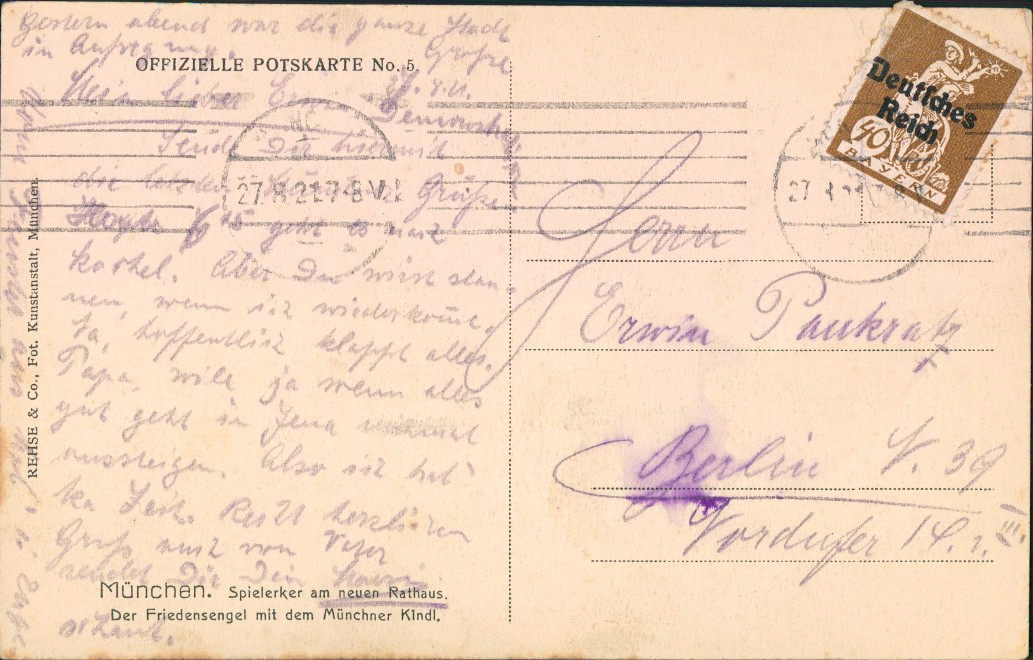 gestern abend war die ganze Stadt
in Aufregung. Große
OFFIZIELLE POTSKARTE No. 5.
Mein lieber Erwin
Sende Dir hiermit
die letzten Grüße.
Heute 6 15 geht es nach
Aber Du wirst stau-
nen, wenn ich wiederkomme.
Ja, hoffentlich klappt alles.
Papa will ja wenn alles
gut geht in Jena einmal
aussteigen. Also ich hab
ka Zeit. Recht herzlichen
Gruß auch von Vater
sendet Dir Dein
München. Spielerker am neuen Rathaus.
Der Friedensengel mit dem Münchner Kindl.
REHSE & Co., Fot. Kunstanstalt, München.
27. 8. 21. 7-8 V.
Deutsches
Reich
40
BAYERN
Herrn
Erwin Pankratz
Berlin N. 39
Nordufer 14. r. III.